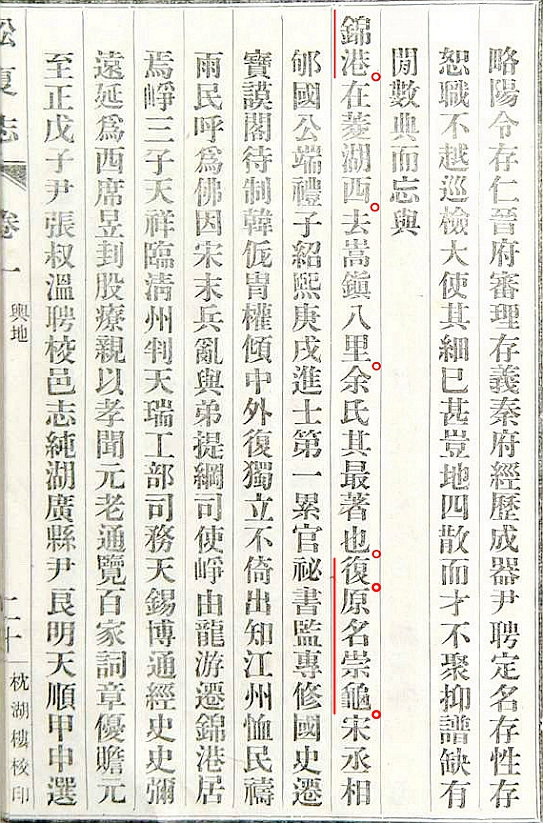 略陽令存仁晉府審理存義秦府經歷成器尹聘定名存性存
恕職不越巡檢大使其細已甚豈地四散而才不聚抑譜缺有
閒數典而忘與
錦港。在菱湖西。去嵩鎮八里。余氏其最著也。復。原名崇龜。宋丞相
郇國公端禮子紹熙庚戌進士第一累官祕書監專修國史遷
寶謨閣待制韓侂胄權傾中外復獨立不倚出知江州恤民禱
雨民呼爲佛因宋末兵亂與弟提綱司使崢由龍游遷錦港居
焉崢三子天祥臨淸州判天瑞工部司務天錫博通經史史彌
遠延爲西席昱刲股療親以孝聞元老通覽百家詞章優贍元
至正戊子尹張叔溫聘校邑志純湖廣縣尹艮明天順甲申選
松夏志
卷一
輿地
二十
枕湖樓校印